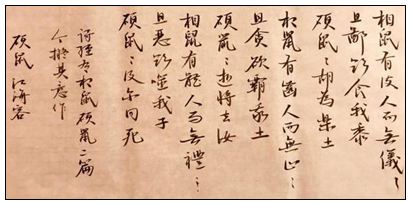 相鼠有皮人而無儀〻
且鄙欲食我黍
碩鼠〻胡為樂土
相鼠有齒人而無止〻
且貪欲霸我土
碩鼠〻逝將去汝
相鼠有體人而無禮〻
且惡欲噬我子
碩鼠〻及尔同死
詩經有相鼠碩鼠二篇
今擬其意作
碩鼠 江海客